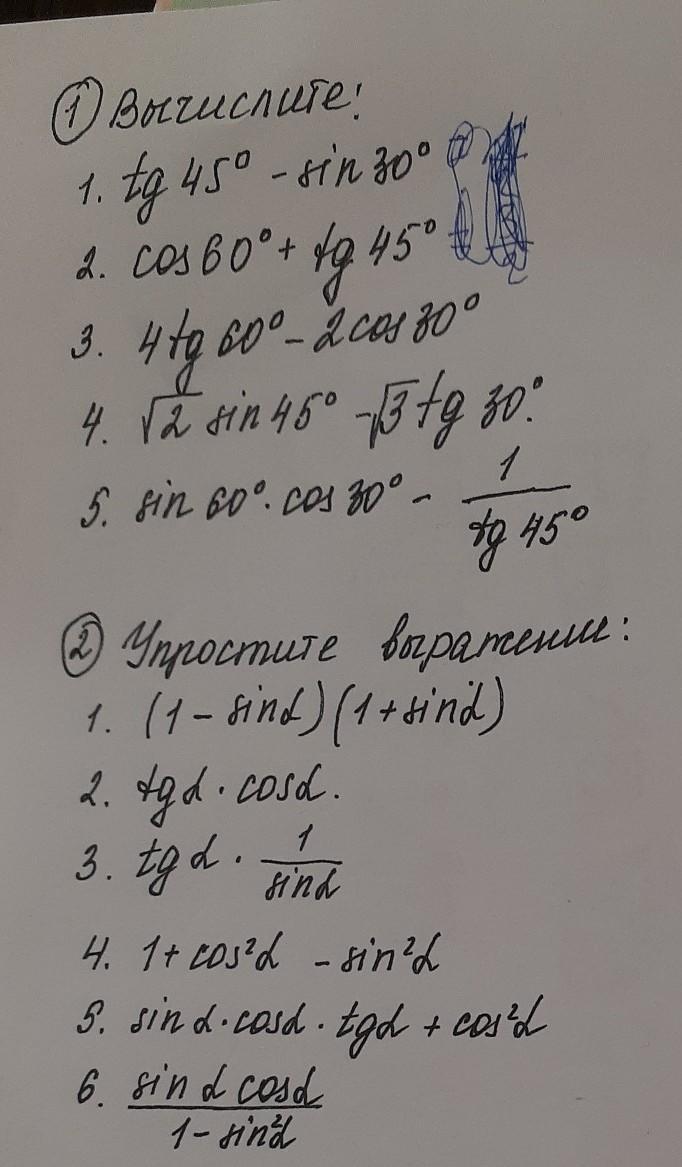 ① Вычислите:
1. tg 45° - sin 30°
2. cos 60° + tg 45°
3. 4 tg 60° - 2 cos 30°
4. √2 sin 45° - √3 tg 30°.
5. sin 60° · cos 30° - 1/tg 45°
② Упростите выражение:
1. (1 - sin α)(1 + sin α)
2. tg α · cos α.
3. tg α · 1/sin α
4. 1 + cos²α - sin²α
5. sin α · cos α · tg α + cos²α
6. sin α cos α/1 - sin²α